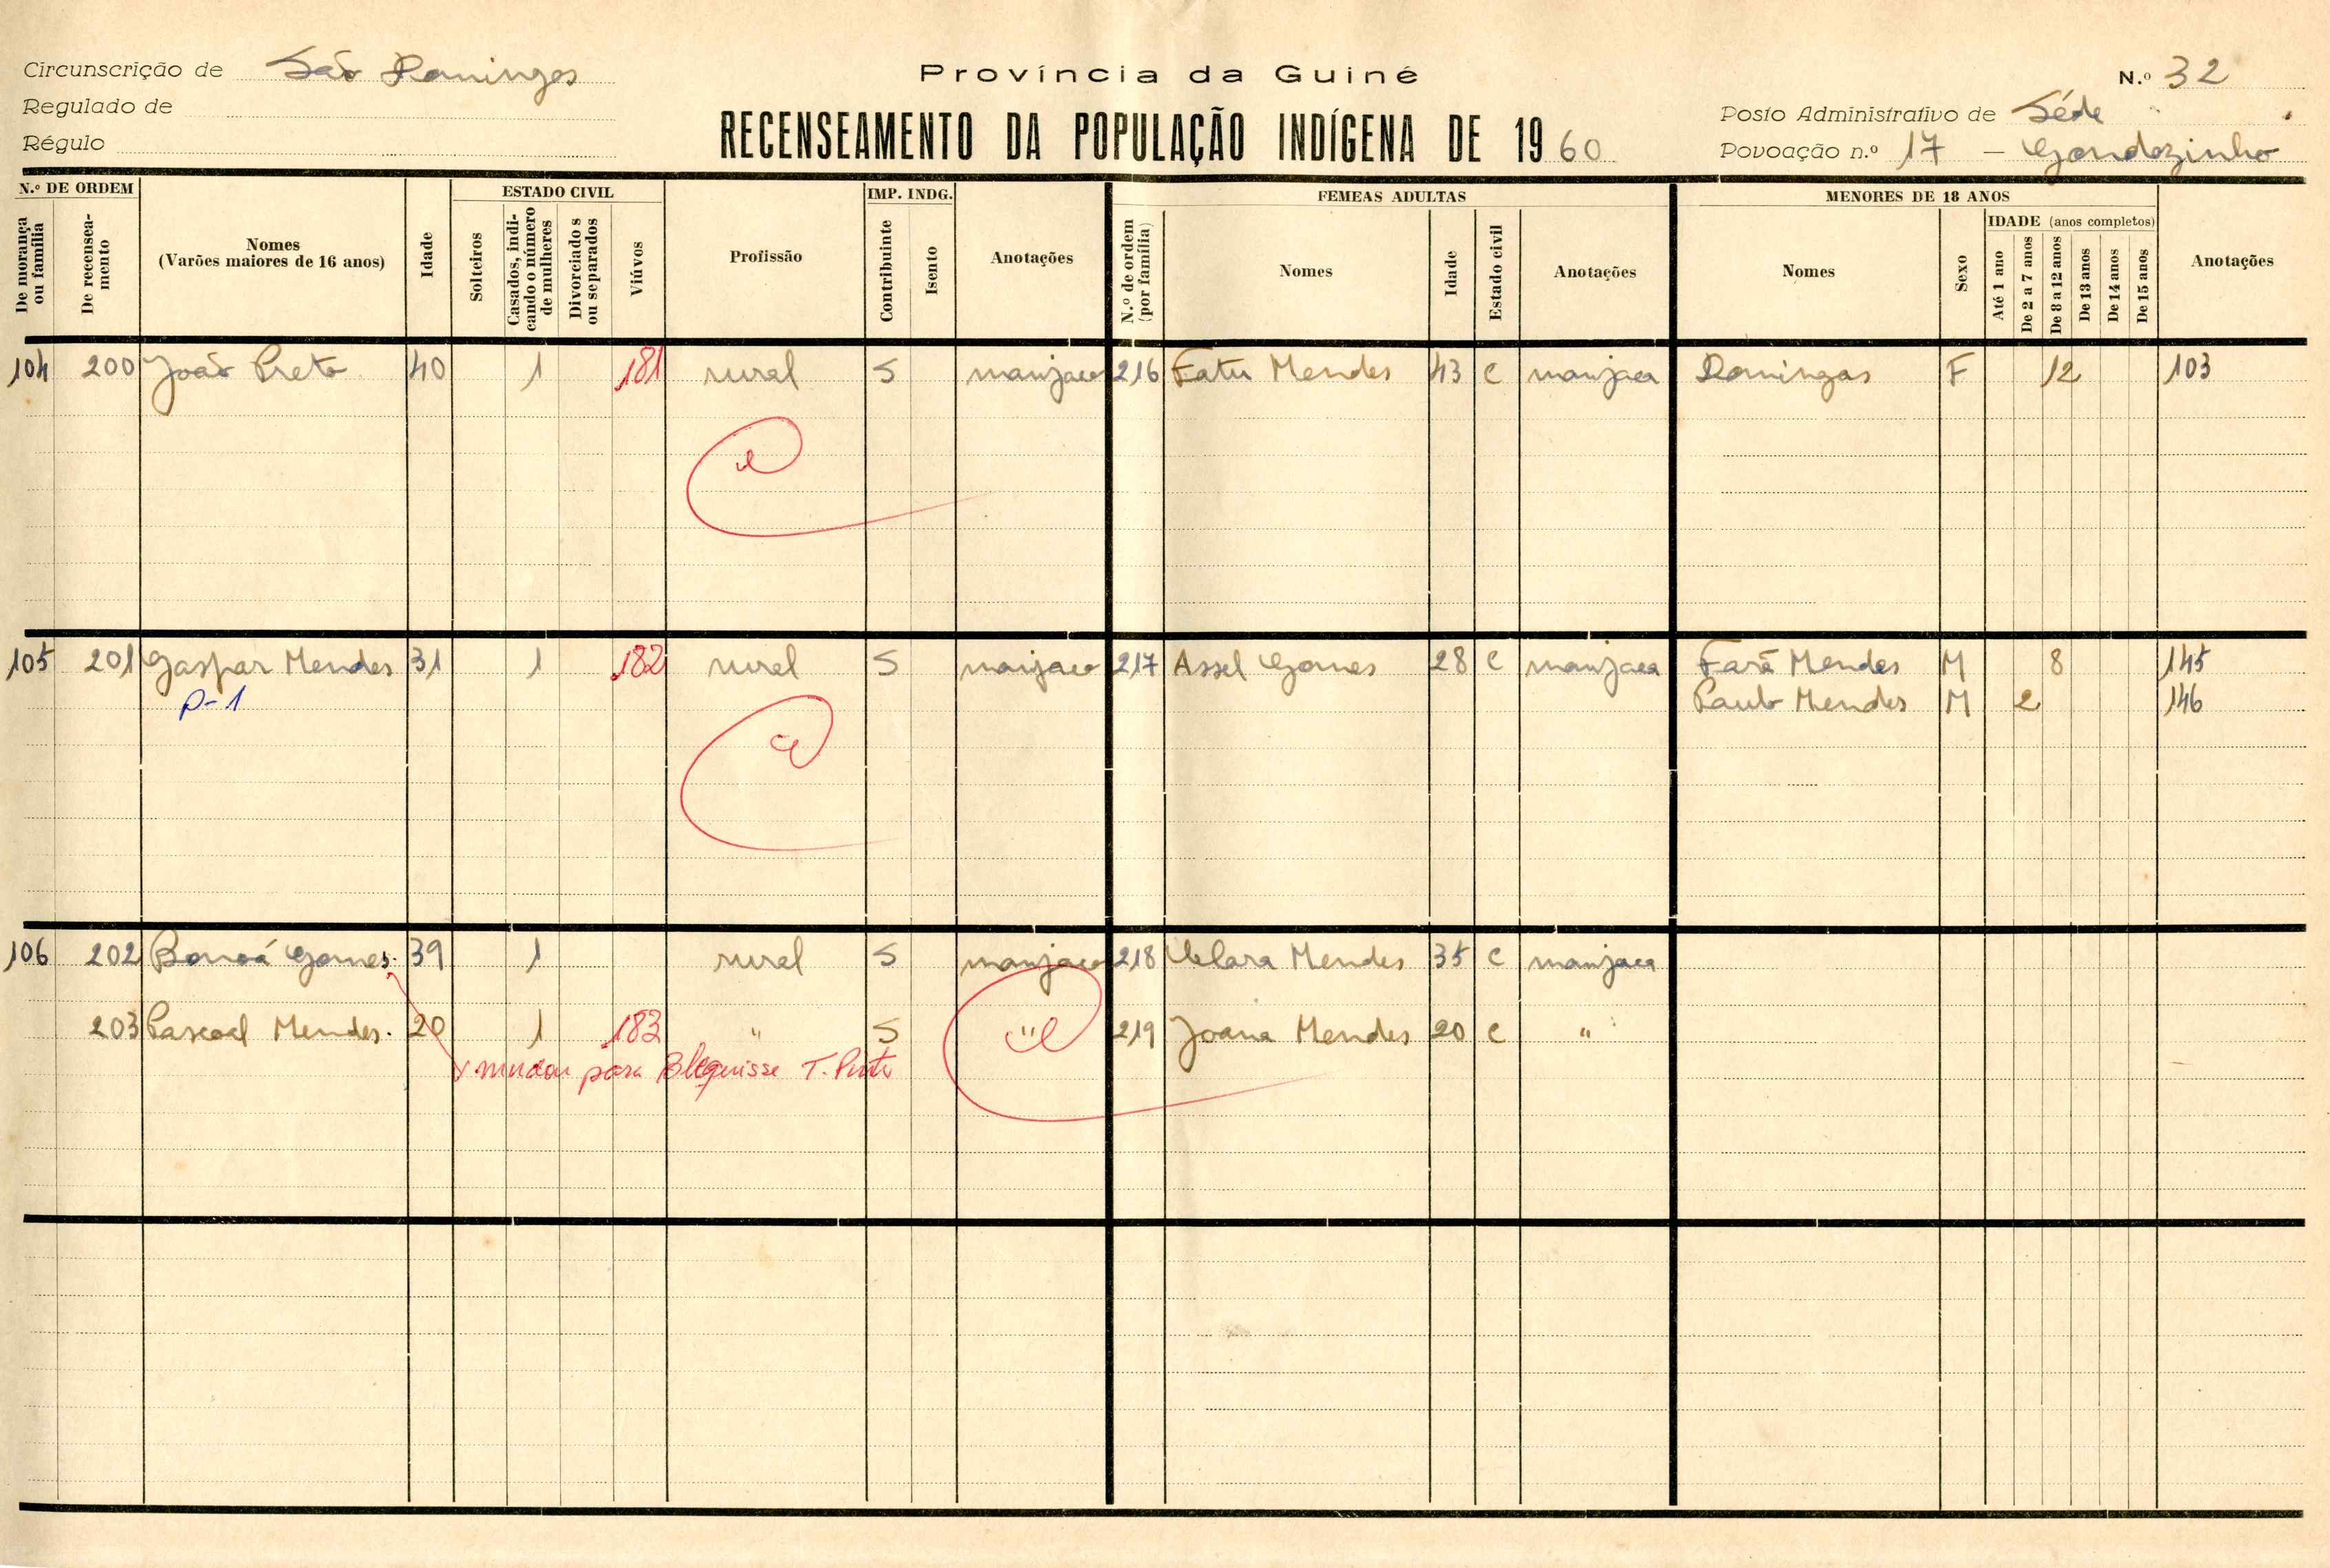 Circunscrição de São Domingos
Regulado de
Régulo
Província da Guiné
RECENSEAMENTO DA POPULAÇÃO INDÍGENA DE 1960
N.º 32
Posto Administrativo de Séde
Povoação n.º 17 - Gondozinho
N.º DE ORDEM
De morança ou família
De recensea-mento
Nomes
(Varões maiores de 16 anos)
Idade
ESTADO CIVIL
Solteiros
Casados, indi-cando o número de mulheres
Divorciados ou separados
Viúvos
Profissão
IMP. INDG.
Contribuinte
Isento
Anotações
FEMEAS ADULTAS
N.º de ordem (por família)
Nomes
Idade
Estado civil
Anotações
MENORES DE 18 ANOS
Nomes
Sexo
IDADE (anos completos)
Até 1 ano
De 2 a 7 anos
De 8 a 12 anos
De 13 anos
De 14 anos
De 15 anos
Anotações
104 200 João Preto 40 1 181 rural S manjaco 216 Fatu Mendes 43 C manjaca Domingas F 12 103
105 201 Gaspar Mendes 31 1 182 rural S manjaco 217 Assel Gomes 28 C manjaca Fará Mendes M 8 145
P-1 Paulo Mendes M 2 146
106 202 Gomes. 39 1 rural S manjaco 218 Clara Mendes 35 C manjaca
203 Pascoal Mendes. 20 1 183 " S " 219 Joana Mendes 20 C "
mudou para Blequisse T. Pinto